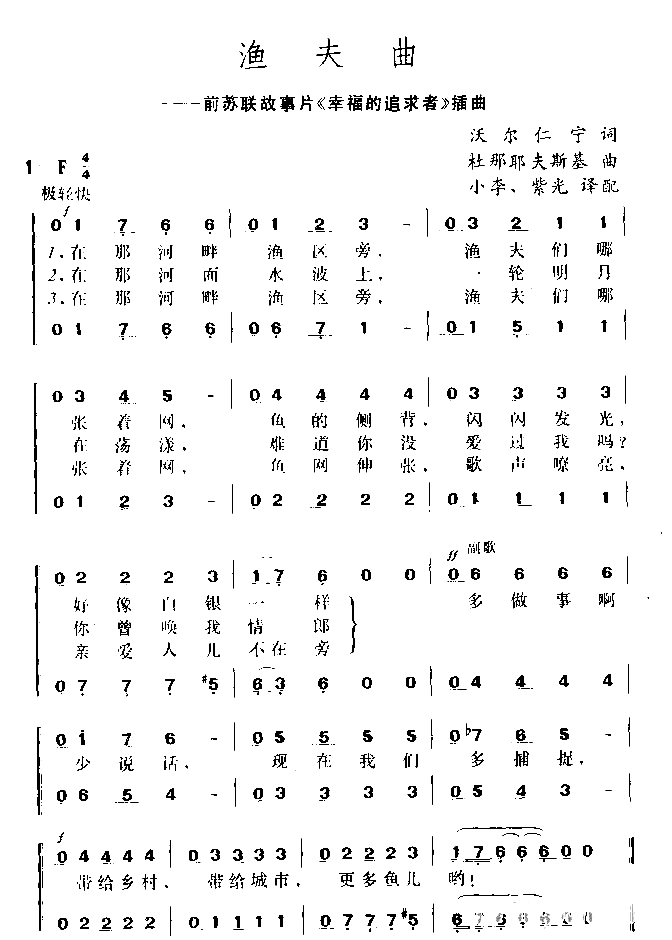 渔夫曲
——前苏联故事片《幸福的追求者》插曲
沃尔仁宁 词
杜那耶夫斯基 曲
小李、紫光 译配
1 F 4/4
极轻快
f
0 1 7 6 6 | 0 1 2 3 - | 0 3 2 1 1
1.在那河畔 渔区旁, 渔夫们哪
2.在那河面 水波上, 一轮明月
3.在那河畔 渔区旁, 渔夫们哪
0 1 7 6 6 | 0 6 7 1 - | 0 1 5 1 1
0 3 4 5 - | 0 4 4 4 4 | 0 3 3 3 3
张着网, 鱼的侧背, 闪闪发光,
在荡漾, 难道你没 爱过我吗?
张着网, 鱼网伸张, 歌声嘹亮,
0 1 2 3 - | 0 2 2 2 2 | 0 1 1 1 1
ff 副歌
0 2 2 2 3 | 1 7 6 0 0 | 0 6 6 6 6
好像白银一样 多做事啊
你曾唤我情郎
亲爱人儿不在旁
0 7 7 7 #5 | 6 3 6 0 0 | 0 4 4 4 4
0 i 7 6 - | 0 5 5 5 5 | 0 b7 6 5 -
少说话, 现在我们 多捕捉,
0 6 5 4 - | 0 3 3 3 3 | 0 5 4 3 -
f
0 4 4 4 4 | 0 3 3 3 3 | 0 2 2 2 3 | 1 7 6 6 6 0 0
带给乡村、 带给城市, 更多鱼儿 哟!
0 2 2 2 2 | 0 1 1 1 1 | 0 7 7 7 #5 | 6 7 6 6 6 0 0